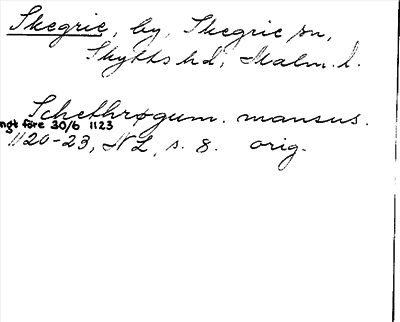 Skegrie, by, Skegrie sn,
Skytts hd, Malm. l.
Schethrøgum. mansus.
ngt före 30/6 1123
1120-23, NL, s. 8. orig.